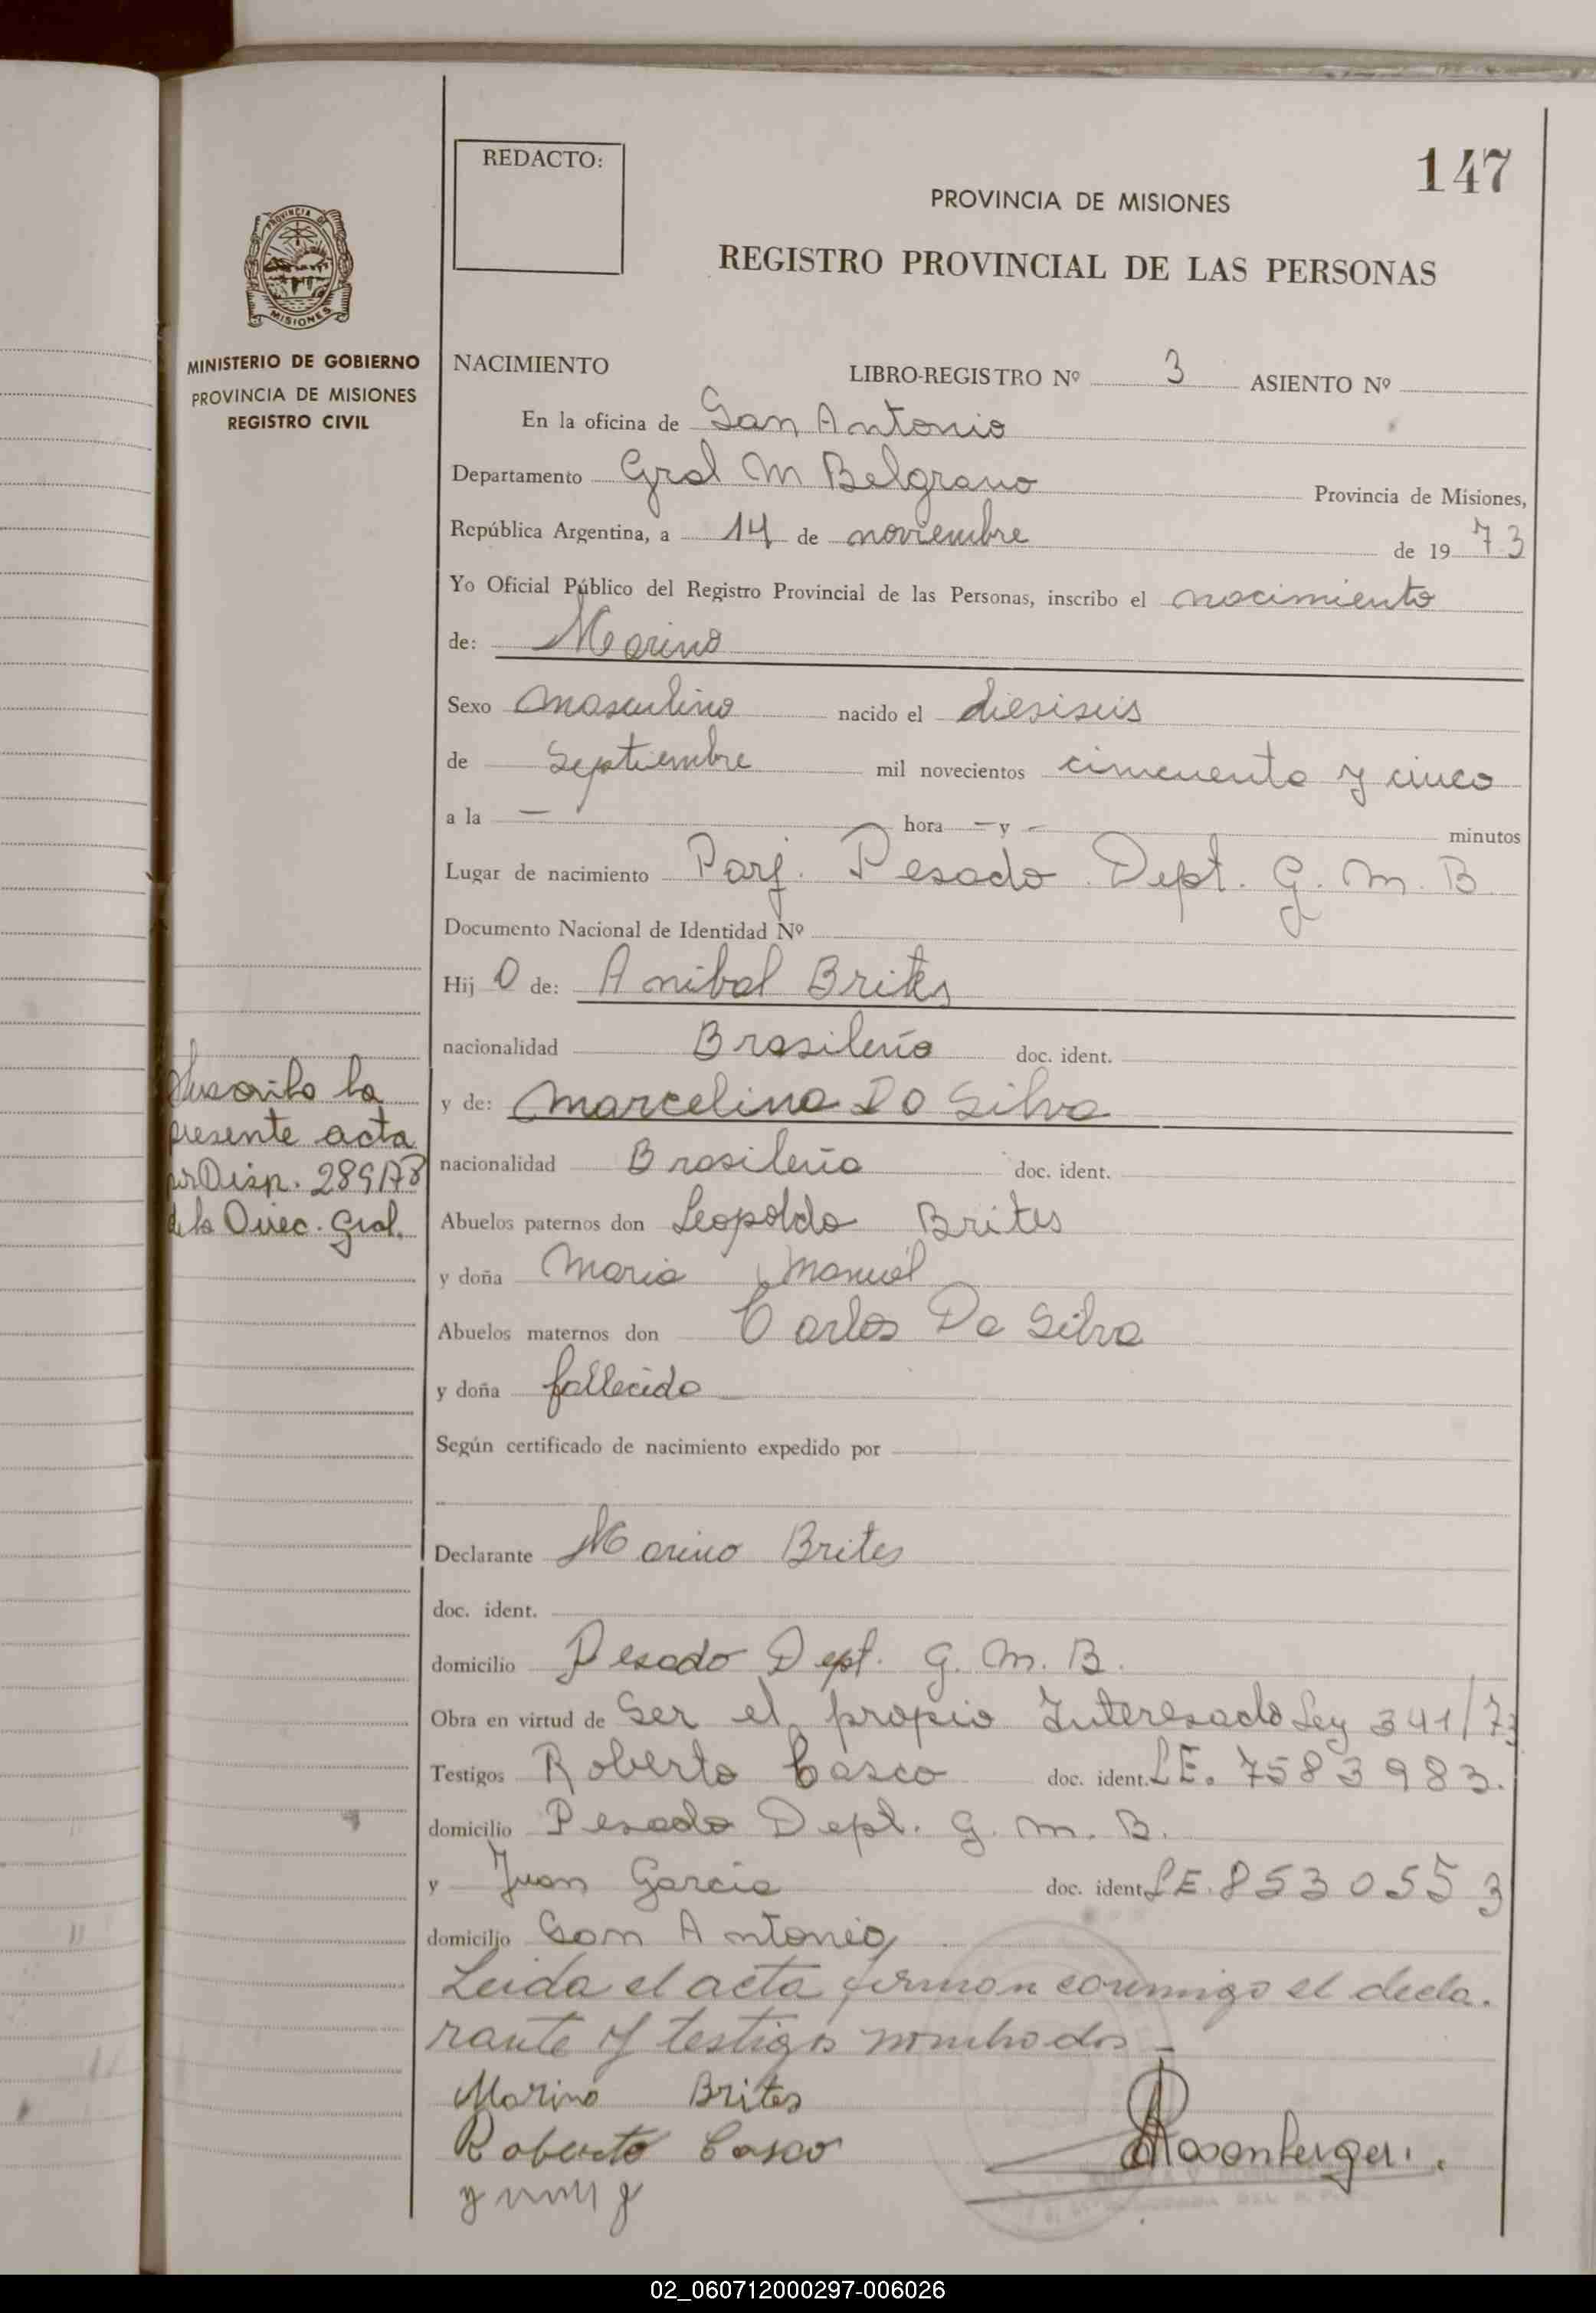 REDACTO:
147
PROVINCIA DE MISIONES
REGISTRO PROVINCIAL DE LAS PERSONAS
PROVINCIA DE
MISIONES
MINISTERIO DE GOBIERNO
PROVINCIA DE MISIONES
REGISTRO CIVIL
NACIMIENTO LIBRO-REGISTRO Nº 3 ASIENTO Nº
En la oficina de San Antonio
Departamento Gral M Belgrano Provincia de Misiones,
República Argentina, a 14 de noviembre de 1973
Yo Oficial Público del Registro Provincial de las Personas, inscribo el nacimiento
de: Marino
Sexo masculino nacido el diesiseis
de Septiembre mil novecientos cincuenta y cinco
a la — hora — y — minutos
Lugar de nacimiento Parj. Pesado Dept. G. M. B.
Documento Nacional de Identidad Nº
Hij O de: Anibal Brites
nacionalidad Brasileño doc. ident.
y de: Marcelina Da Silva
nacionalidad Brasileña doc. ident.
Abuelos paternos don Leopoldo Brites
y doña Maria Manuel
Abuelos maternos don Carlos Da Silva
y doña fallecida
Según certificado de nacimiento expedido por
Declarante Marino Brites
doc. ident.
domicilio Pesado Dept. G. M. B.
Obra en virtud de Ser el propio Interesado Ley 341/73
Testigos Roberto Casco doc. ident. LE. 7583983.
domicilio Pesado Dept. G. M. B.
y Juan Garcia doc. ident. LE. 8530553
domicilio San Antonio
Leida el acta firman conmigo el decla.
rante y testigos nombrados —
Marino Brites
Roberto Casco
Rosenberger.
Inscrita la
presente acta
por Disp. 289/73
de la Direc. Gral.
02_060712000297-006026